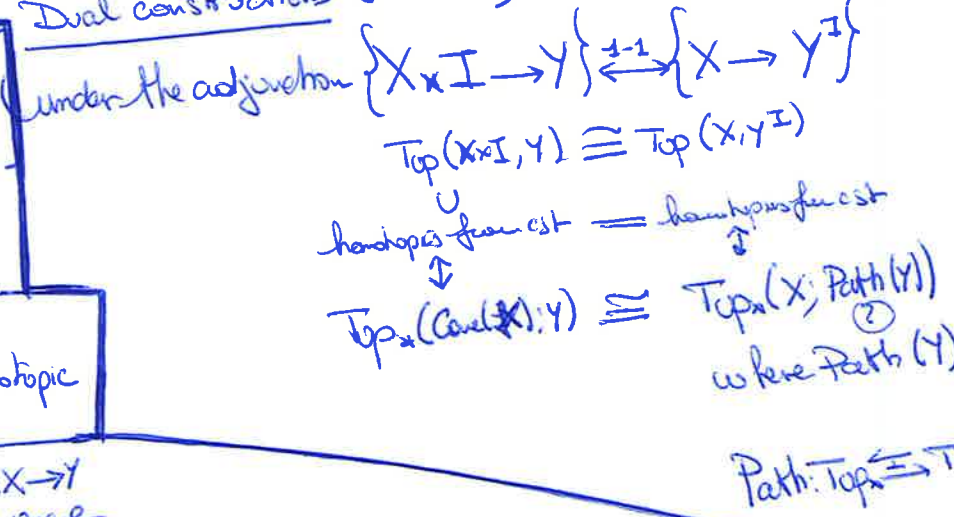 Dual constructions
under the adjunction {X×I → Y} 1-1 ↔ {X → Y^I}
Top(X×I, Y) ≅ Top(X, Y^I)
∪
homotopies from cst = homotopies from cst
↕ ↕
Top_*(Cone(X); Y) ≅ Top_*(X; Path(Y))
?
where Path(Y)
otopic
X → Y
Path: Top_* ⇄ T